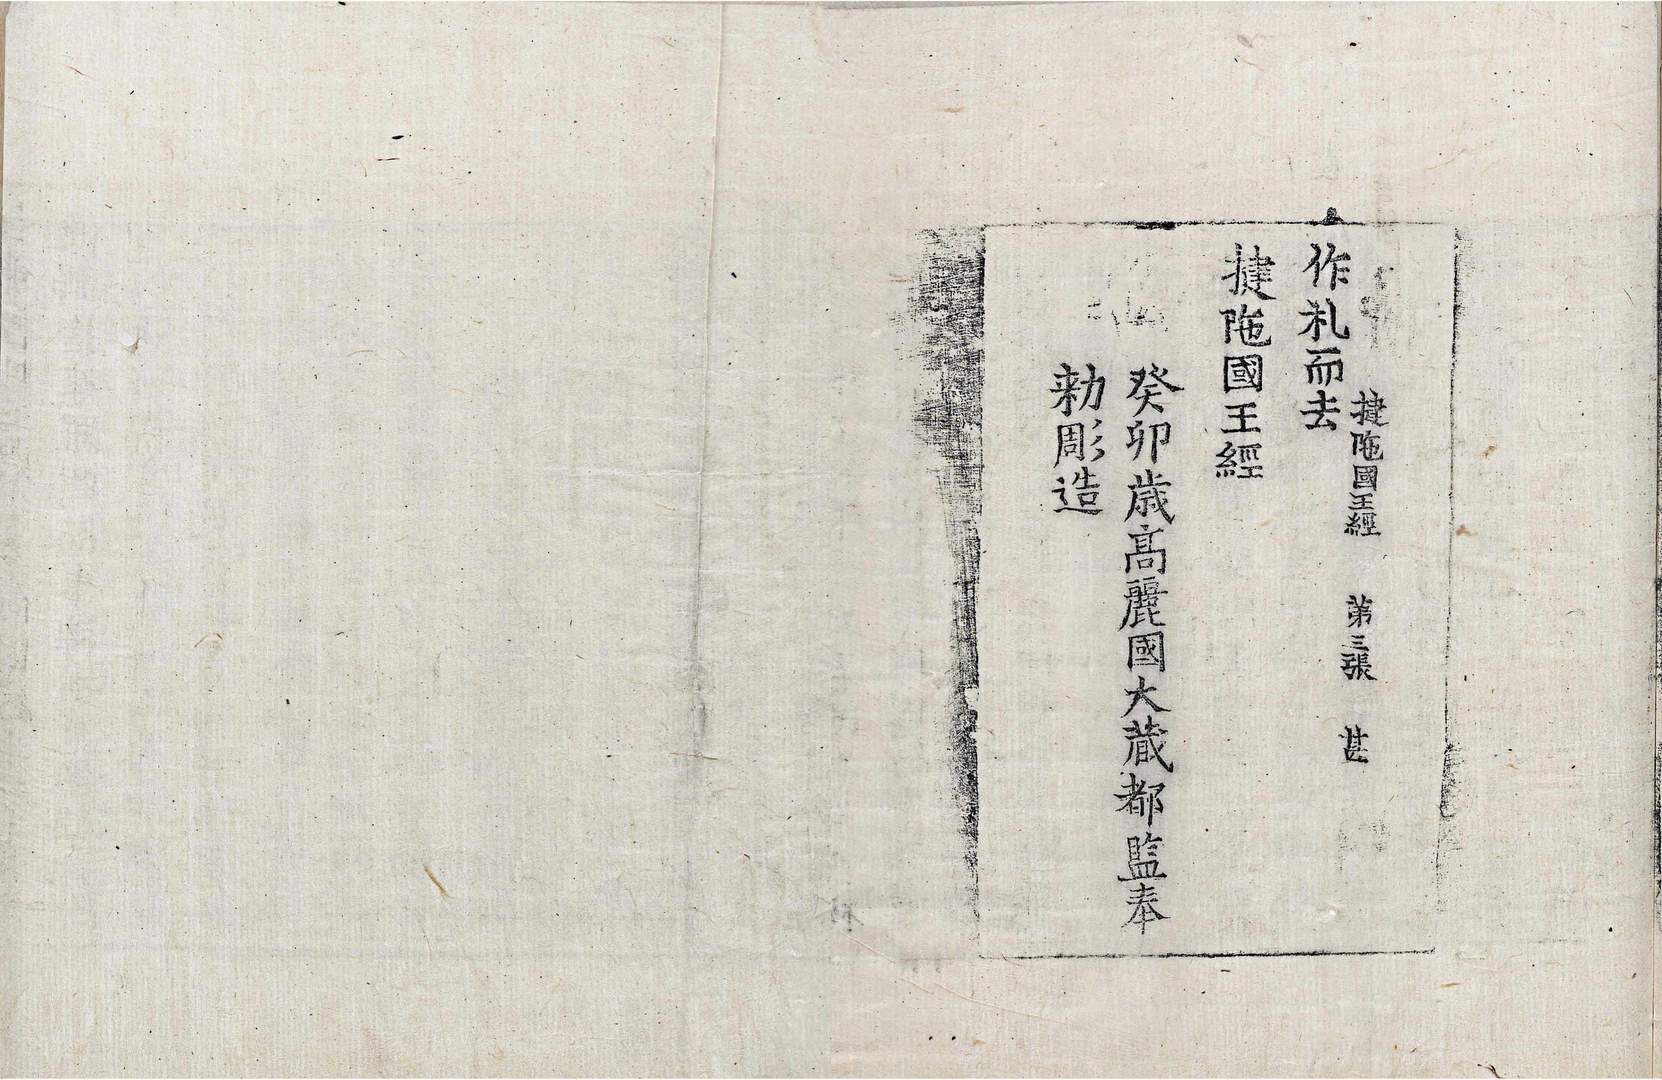 揵陁國王經 第三張 甚
作礼而去
揵陁國王經
癸卯歳高麗國大藏都監奉
勑彫造